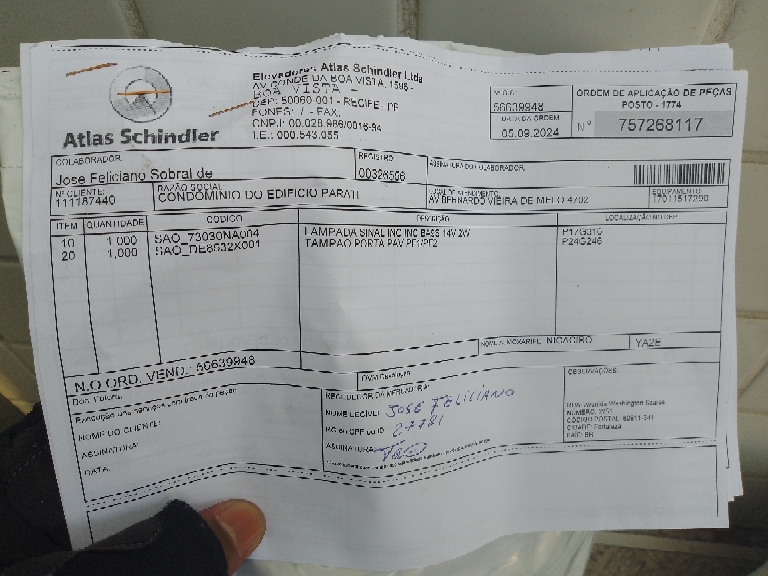 Atlas Schindler
Elevadores Atlas Schindler Ltda
AV CONDE DA BOA VISTA, 1596 -
BOA VISTA -
CEP: 50060-001 - RECIFE - PE
FONES: / - FAX:
CNPJ: 00.028.986/0016-94
I.E.: 000.543.055
56639948
DATA DA ORDEM
05.09.2024
ORDEM DE APLICAÇÃO DE PEÇAS
POSTO - 1774
N° 757268117
COLABORADOR
Jose Feliciano Sobral de
REGISTRO
00326506
ASSINATURA DO COLABORADOR
Nº CLIENTE:
111187440
RAZÃO SOCIAL
CONDOMINIO DO EDIFICIO PARATI
LOCAL DE ATENDIMENTO:
AV BERNARDO VIEIRA DE MELO 4702
EQUIPAMENTO
ITEM QUANTIDADE CODIGO DESCRIÇÃO LOCALIZAÇÃO NO DEP.
10 1,000 SAO_73030NA004 LAMPADA SINAL INC INC BA9S 14V 2W P17G310
20 1,000 SAO_DE8632X001 TAMPAO PORTA PAV PF1/PF2 P24G246
NICACIRO YA2E
N.O ORD. VEND.: 56639948
NOME DO CLIENTE:
ASSINATURA:
DATA:
RECEBEDOR DA MERCADORIA:
NOME LEGIVEL: JOSÉ FELICIANO
RG ou CPF ou ID 27781
ASSINATURA:
OBSERVAÇÕES
RUA: Avenida Washington Soares
CODIGO POSTAL: 60811-341
CIDADE: Fortaleza
PAIS: BR